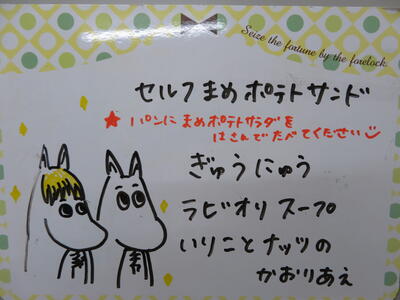 Seize the fortune by the forelock.
セルフまめポテトサンド
★パンにまめポテトサラダを
はさんでたべてください
ぎゅうにゅう
ラビオリスープ
いりことナッツの
かおりあえ